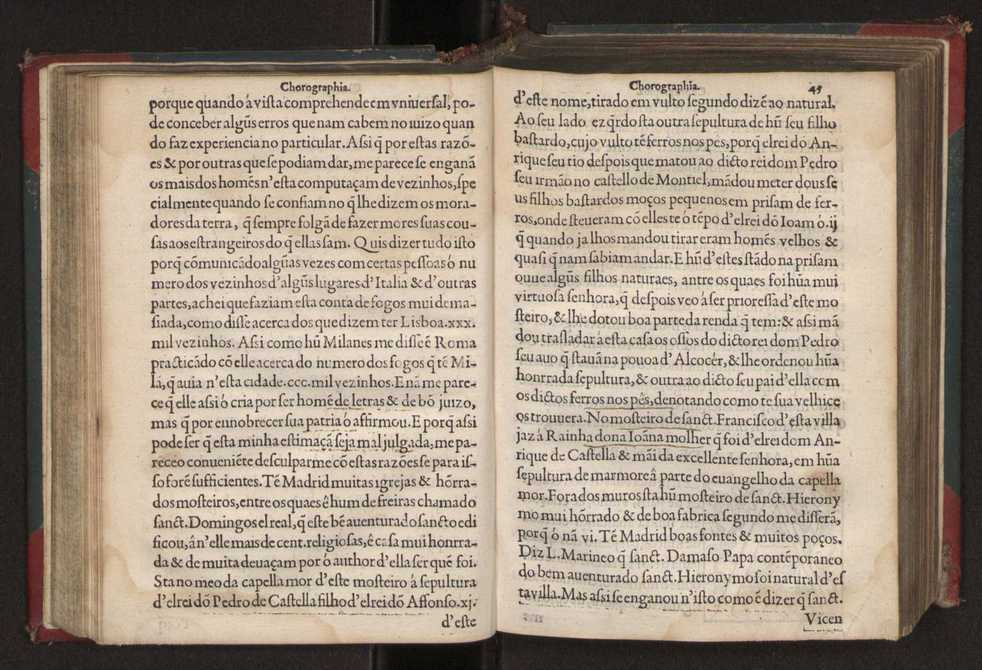 Chorographia.
porque quando á vista comprehende em vniuersal, po-
de conceber algũs erros que nam cabem no iuizo quan
do faz experiencia no particular. Assi q̃ por estas razõ-
es & por outras que se podiam dar, me parece se enganã
os mais dos homẽs n'esta computaçam de vezinhos, spe
cialmente quando se confiam no q̃ lhe dizem os mora-
dores da terra, q̃ sempre folgã de fazer mores suas cou-
sas aos estrangeiros do q̃ ellas sam. Quis dizer tudo isto
porq̃ cõmunicãdo algũas vezes com certas pessoas ó nu
mero dos vezinhos d'algũs lugares d'Italia & d'outras
partes, achei que faziam esta conta de fogos mui dema-
siada, como disse acerca dos que dizem ter Lisboa .xxx.
mil vezinhos. Assi como hũ Milanes me disse ẽ Roma
practicãdo cõ elle acerca do numero dos fogos q̃ tẽ Mi-
lã, q̃ auia n'esta cidade .ccc. mil vezinhos. E nã me pare-
ce q̃ elle assi ó cria por ser homẽ de letras & de bõ juizo,
mas q̃ por ennobrecer sua patria ó affirmou. E porq̃ assi
pode ser q̃ esta minha estimaçã seja mal julgada, me pa-
receo conueniẽte desculparme cõ estas razões se para is-
so forẽ sufficientes. Tẽ Madrid muitas igrejas & hõrra-
dos mosteiros, entre os quaes é hum de freiras chamado
sanct. Domingos el real, q̃ este bẽ auenturado sancto edi
ficou, á n'elle mais de cent. religiosas, é casa mui honrra-
da & de muita deuaçam por ó author d'ella ser quẽ foi.
Sta no meo da capella mor d'este mosteiro á sepultura
d'elrei dõ Pedro de Castella filho d'elrei dõ Affonso .xj.
d'este
Chorographia. 45
d'este nome, tirado em vulto segundo dizẽ ao natural.
Ao seu lado ezq̃rdo sta outra sepultura de hũ seu filho
bastardo, cujo vulto tẽ ferros nos pés, porq̃ elrei dõ An-
rique seu tio despois que matou ao dicto rei dom Pedro
seu irmão no castello de Montiel, mãdou meter dous se
us filhos bastardos moços pequenos em prisam de fer-
ros, onde steueram cõ elles te ó tẽpo d'elrei dõ Ioam ó .ij
q̃ quando ja lhos mandou tirar eram homẽs velhos &
quasi q̃ nam sabiam andar. E hũ d'estes stãdo na prisam
ouue algũs filhos naturaes, antre os quaes foi hũa mui
virtuosa senhora, q̃ despois veo á ser prioressa d'este mo
steiro, & lhe dotou boa parte da renda q̃ tem: & assi mã
dou trasladar á esta casa os ossos do dicto rei dom Pedro
seu auo q̃ stauã na pouoa d'Alcocér, & lhe ordenou hũa
honrrada sepultura, & outra ao dicto seu pai d'ella com
os dictos ferros nos pés, denotando como te sua velhice
os trouuera. No mosteiro de sanct. Francisco d'esta villa
jaz á Rainha dona Ioãna molher q̃ foi d'elrei dom An-
rique de Castella & mãi da excellente senhora, em hũa
sepultura de marmore á parte do euangelho da capella
mor. Fora dos muros sta hũ mosteiro de sanct. Hierony
mo mui hõrrado & de boa fabrica segundo me disserã,
porq̃ ó nã vi. Tẽ Madrid boas fontes & muitos poços.
Diz L. Marineo q̃ sanct. Damaso Papa contẽporaneo
do bem auenturado sanct. Hieronymo foi natural d'es
ta villa. Mas assi se enganou n'isto como é dizer q̃ sanct.
Vicen